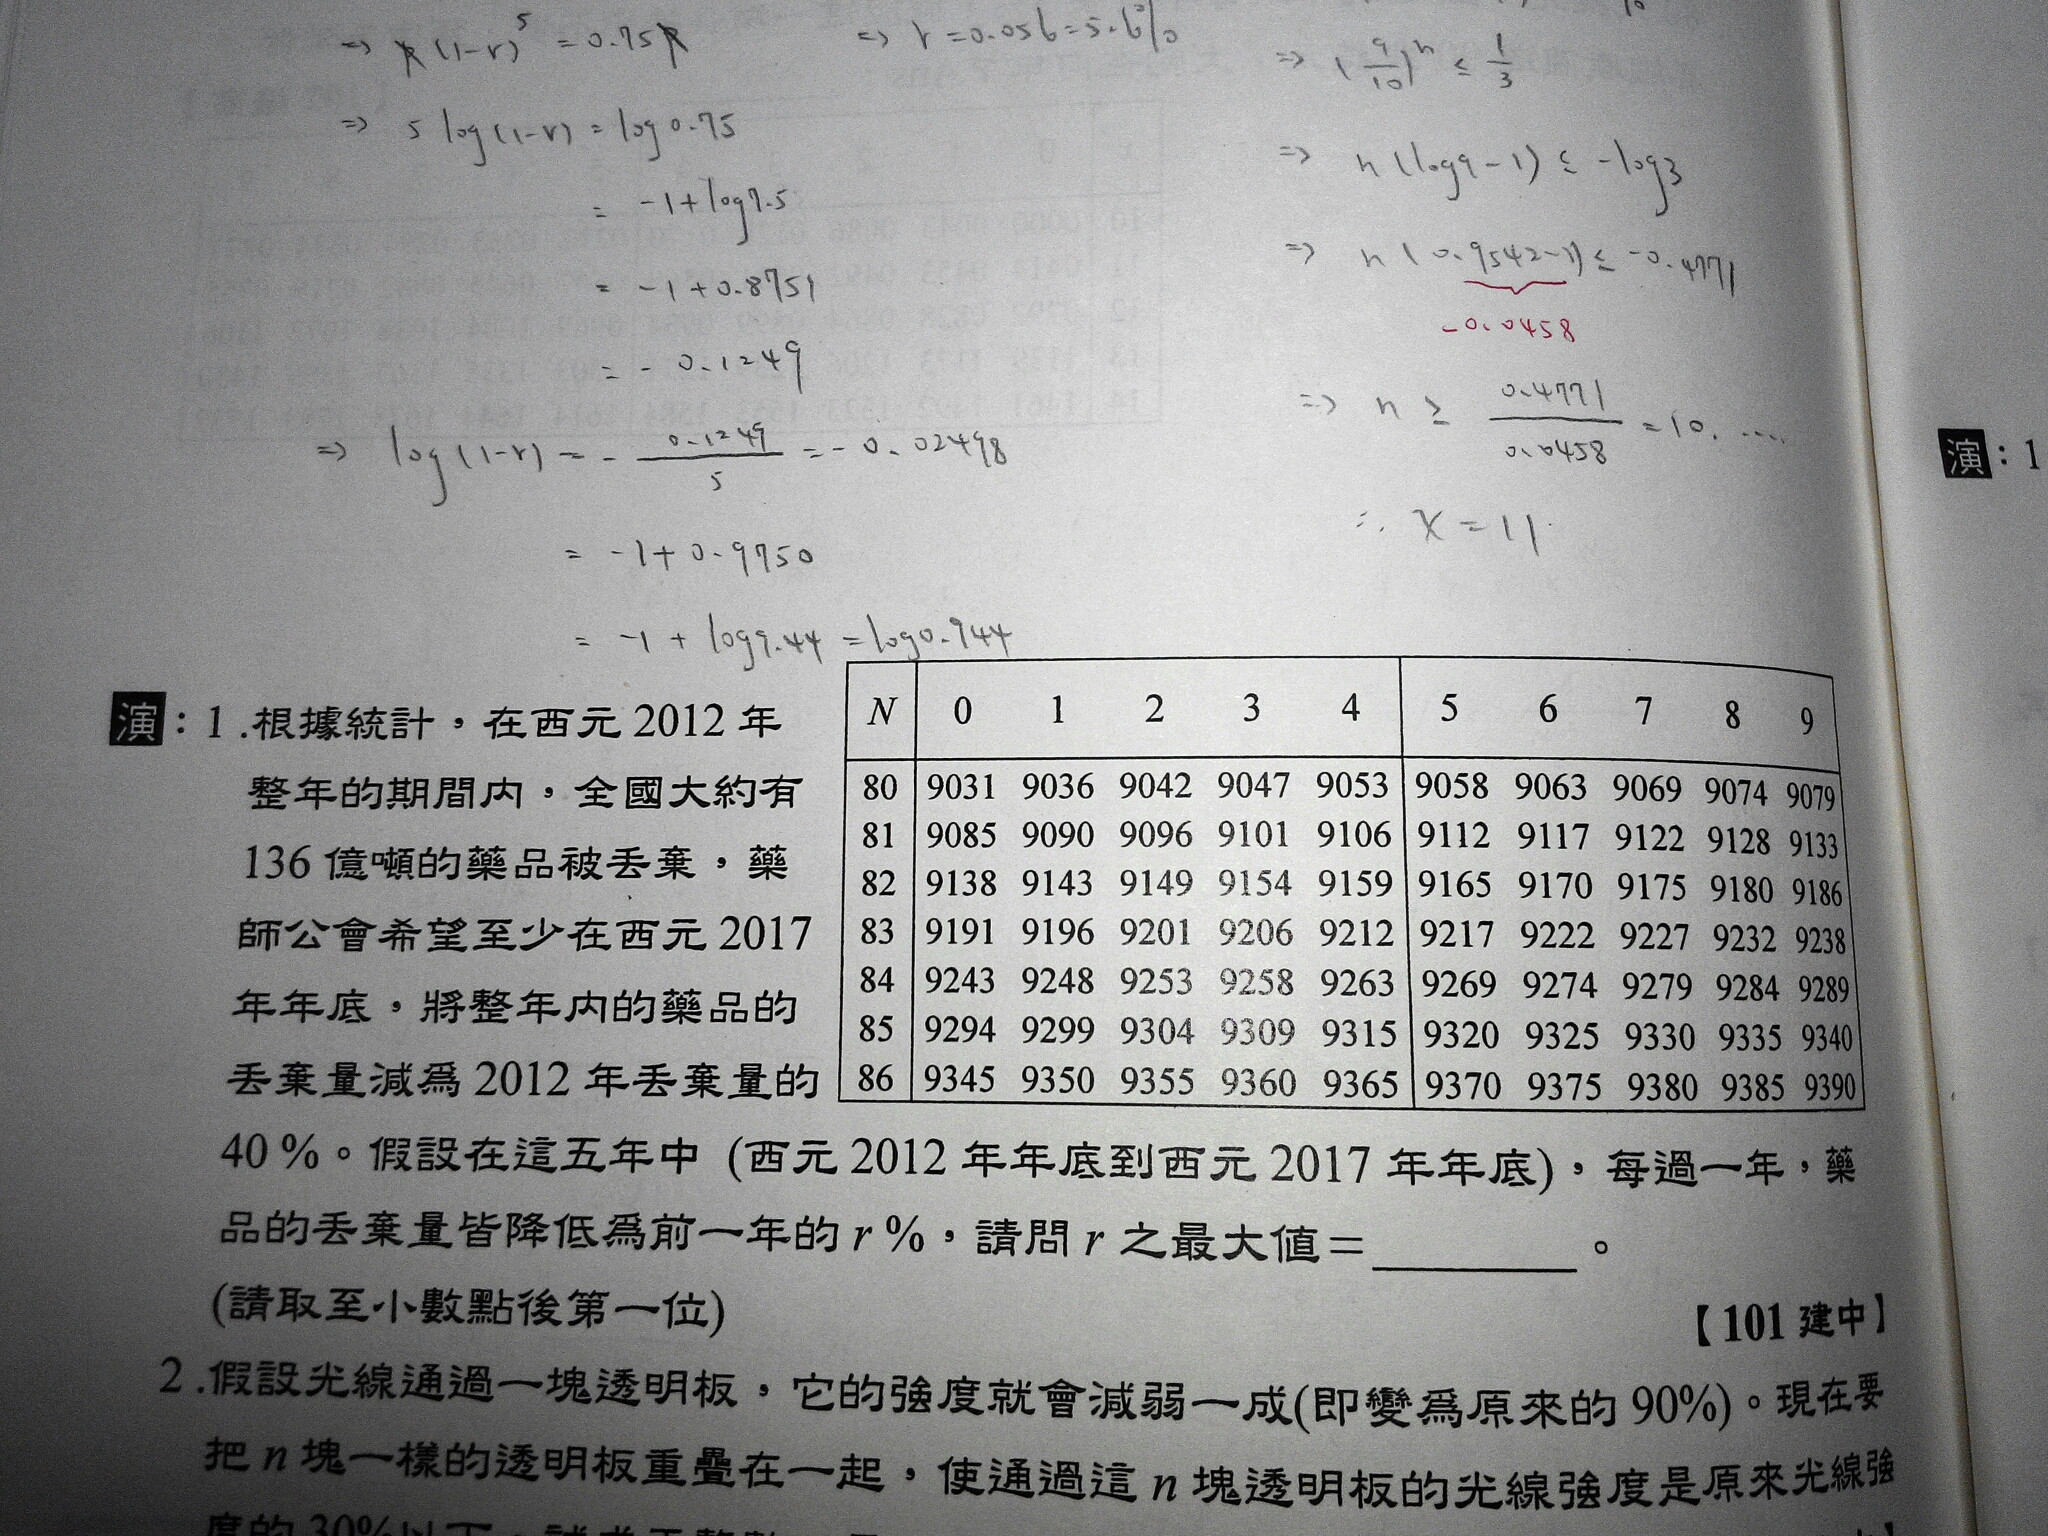 ⇒ k(1-r)⁵ = 0.75k
⇒ 5 log(1-r) = log0.75
= -1+log7.5
= -1+0.8751
= -0.1249
⇒ log(1-r) = - 0.1249/5 = -0.02498
= -1+0.9750
= -1 + log9.44 = log0.944
⇒ r=0.056=5.6%
⇒ (9/10)ⁿ ≤ 1/3
⇒ n(log9-1) ≤ -log3
⇒ n(0.9542-1) ≤ -0.4771
-0.0458
⇒ n ≥ 0.4771/0.0458 = 10.....
∴ x = 11
演：1
演：1.根據統計，在西元 2012 年
整年的期間內，全國大約有
136 億噸的藥品被丟棄，藥
師公會希望至少在西元 2017
年年底，將整年內的藥品的
丟棄量減爲 2012 年丟棄量的
N 0 1 2 3 4 5 6 7 8 9
80 9031 9036 9042 9047 9053 9058 9063 9069 9074 9079
81 9085 9090 9096 9101 9106 9112 9117 9122 9128 9133
82 9138 9143 9149 9154 9159 9165 9170 9175 9180 9186
83 9191 9196 9201 9206 9212 9217 9222 9227 9232 9238
84 9243 9248 9253 9258 9263 9269 9274 9279 9284 9289
85 9294 9299 9304 9309 9315 9320 9325 9330 9335 9340
86 9345 9350 9355 9360 9365 9370 9375 9380 9385 9390
40 %。假設在這五年中 (西元 2012 年年底到西元 2017 年年底)，每過一年，藥
品的丟棄量皆降低爲前一年的 r %，請問 r 之最大值＝ 。
(請取至小數點後第一位)
【101 建中】
2.假設光線通過一塊透明板，它的強度就會減弱一成(即變爲原來的 90%)。現在要
把 n 塊一樣的透明板重疊在一起，使通過這 n 塊透明板的光線強度是原來光線強
度的 30%以下，